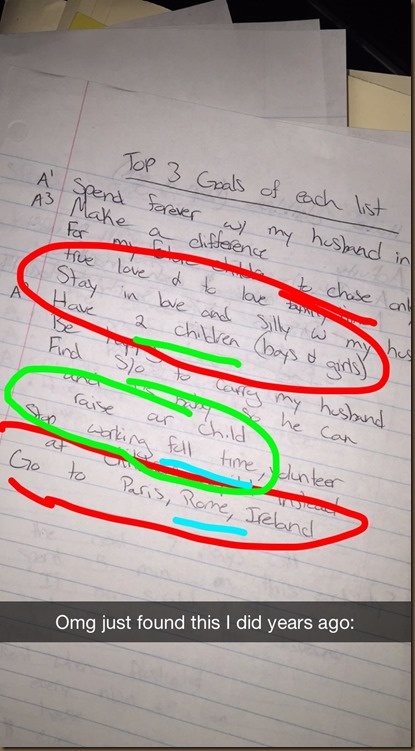 Top 3 Goals of each list
A1 Spend forever w/ my husband in
A3 Make a difference
For my future to chase only
true love & to love
Stay in love and silly w my hus
A Have 2 children (boys & girls)
Be to carry my husband
Find so he can
and
raise ar child
Stop working full time, volunteer
at instead
Go to Paris, Rome, Ireland
Omg just found this I did years ago: